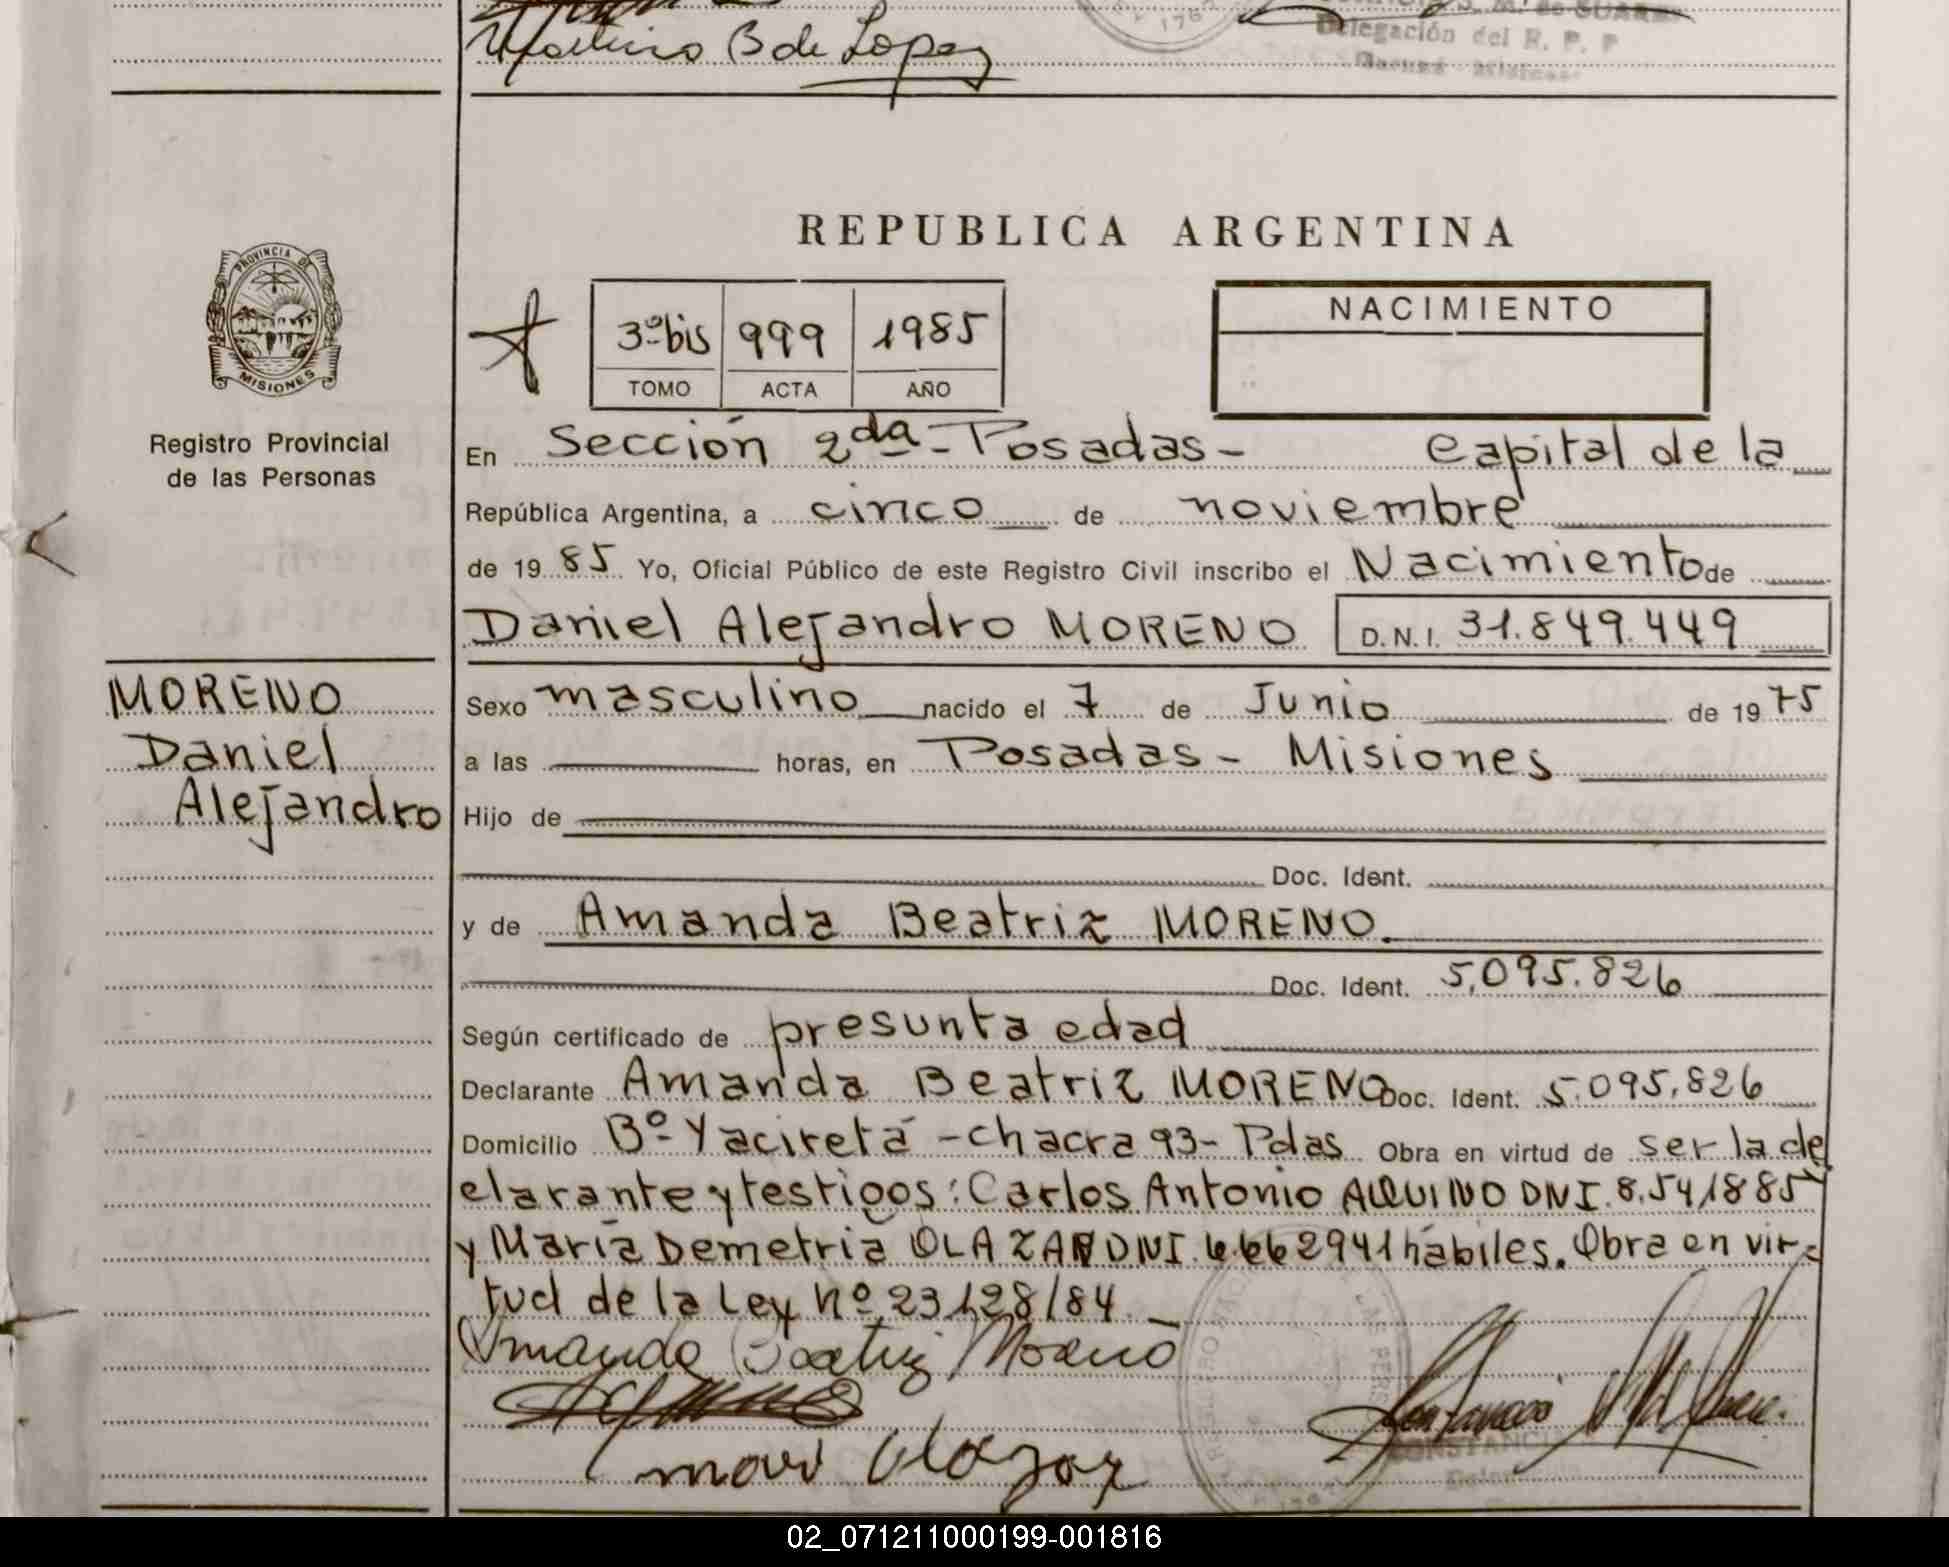 Martires B de Lopez
Delegación del R. P. P
REPUBLICA ARGENTINA
PROVINCIA DE
MISIONES
Registro Provincial
de las Personas
3º bis 999 1985
TOMO ACTA AÑO
NACIMIENTO
En Sección 2da - Posadas - Capital de la
República Argentina, a cinco de noviembre
de 1985 Yo, Oficial Público de este Registro Civil inscribo el Nacimiento de
Daniel Alejandro MORENO D.N.I. 31.849.449
MORENO
Daniel
Alejandro
Sexo masculino nacido el 7 de Junio de 1975
a las horas, en Posadas - Misiones
Hijo de
Doc. Ident.
y de Amanda Beatriz MORENO
Doc. Ident. 5.095.826
Según certificado de presunta edad
Declarante Amanda Beatriz MORENO Doc. Ident. 5.095.826
Domicilio Bº Yacireta - chacra 93 - Pdas Obra en virtud de ser la de
clarante y testigos: Carlos Antonio AQUINO DNI. 8.541885
y María Demetria OLAZAR DNI. 6.662941 hábiles. Obra en vir-
tud de la Ley nº 23.128/84.
Amanda Beatriz Moreno
Mari Olazar
02_071211000199-001816